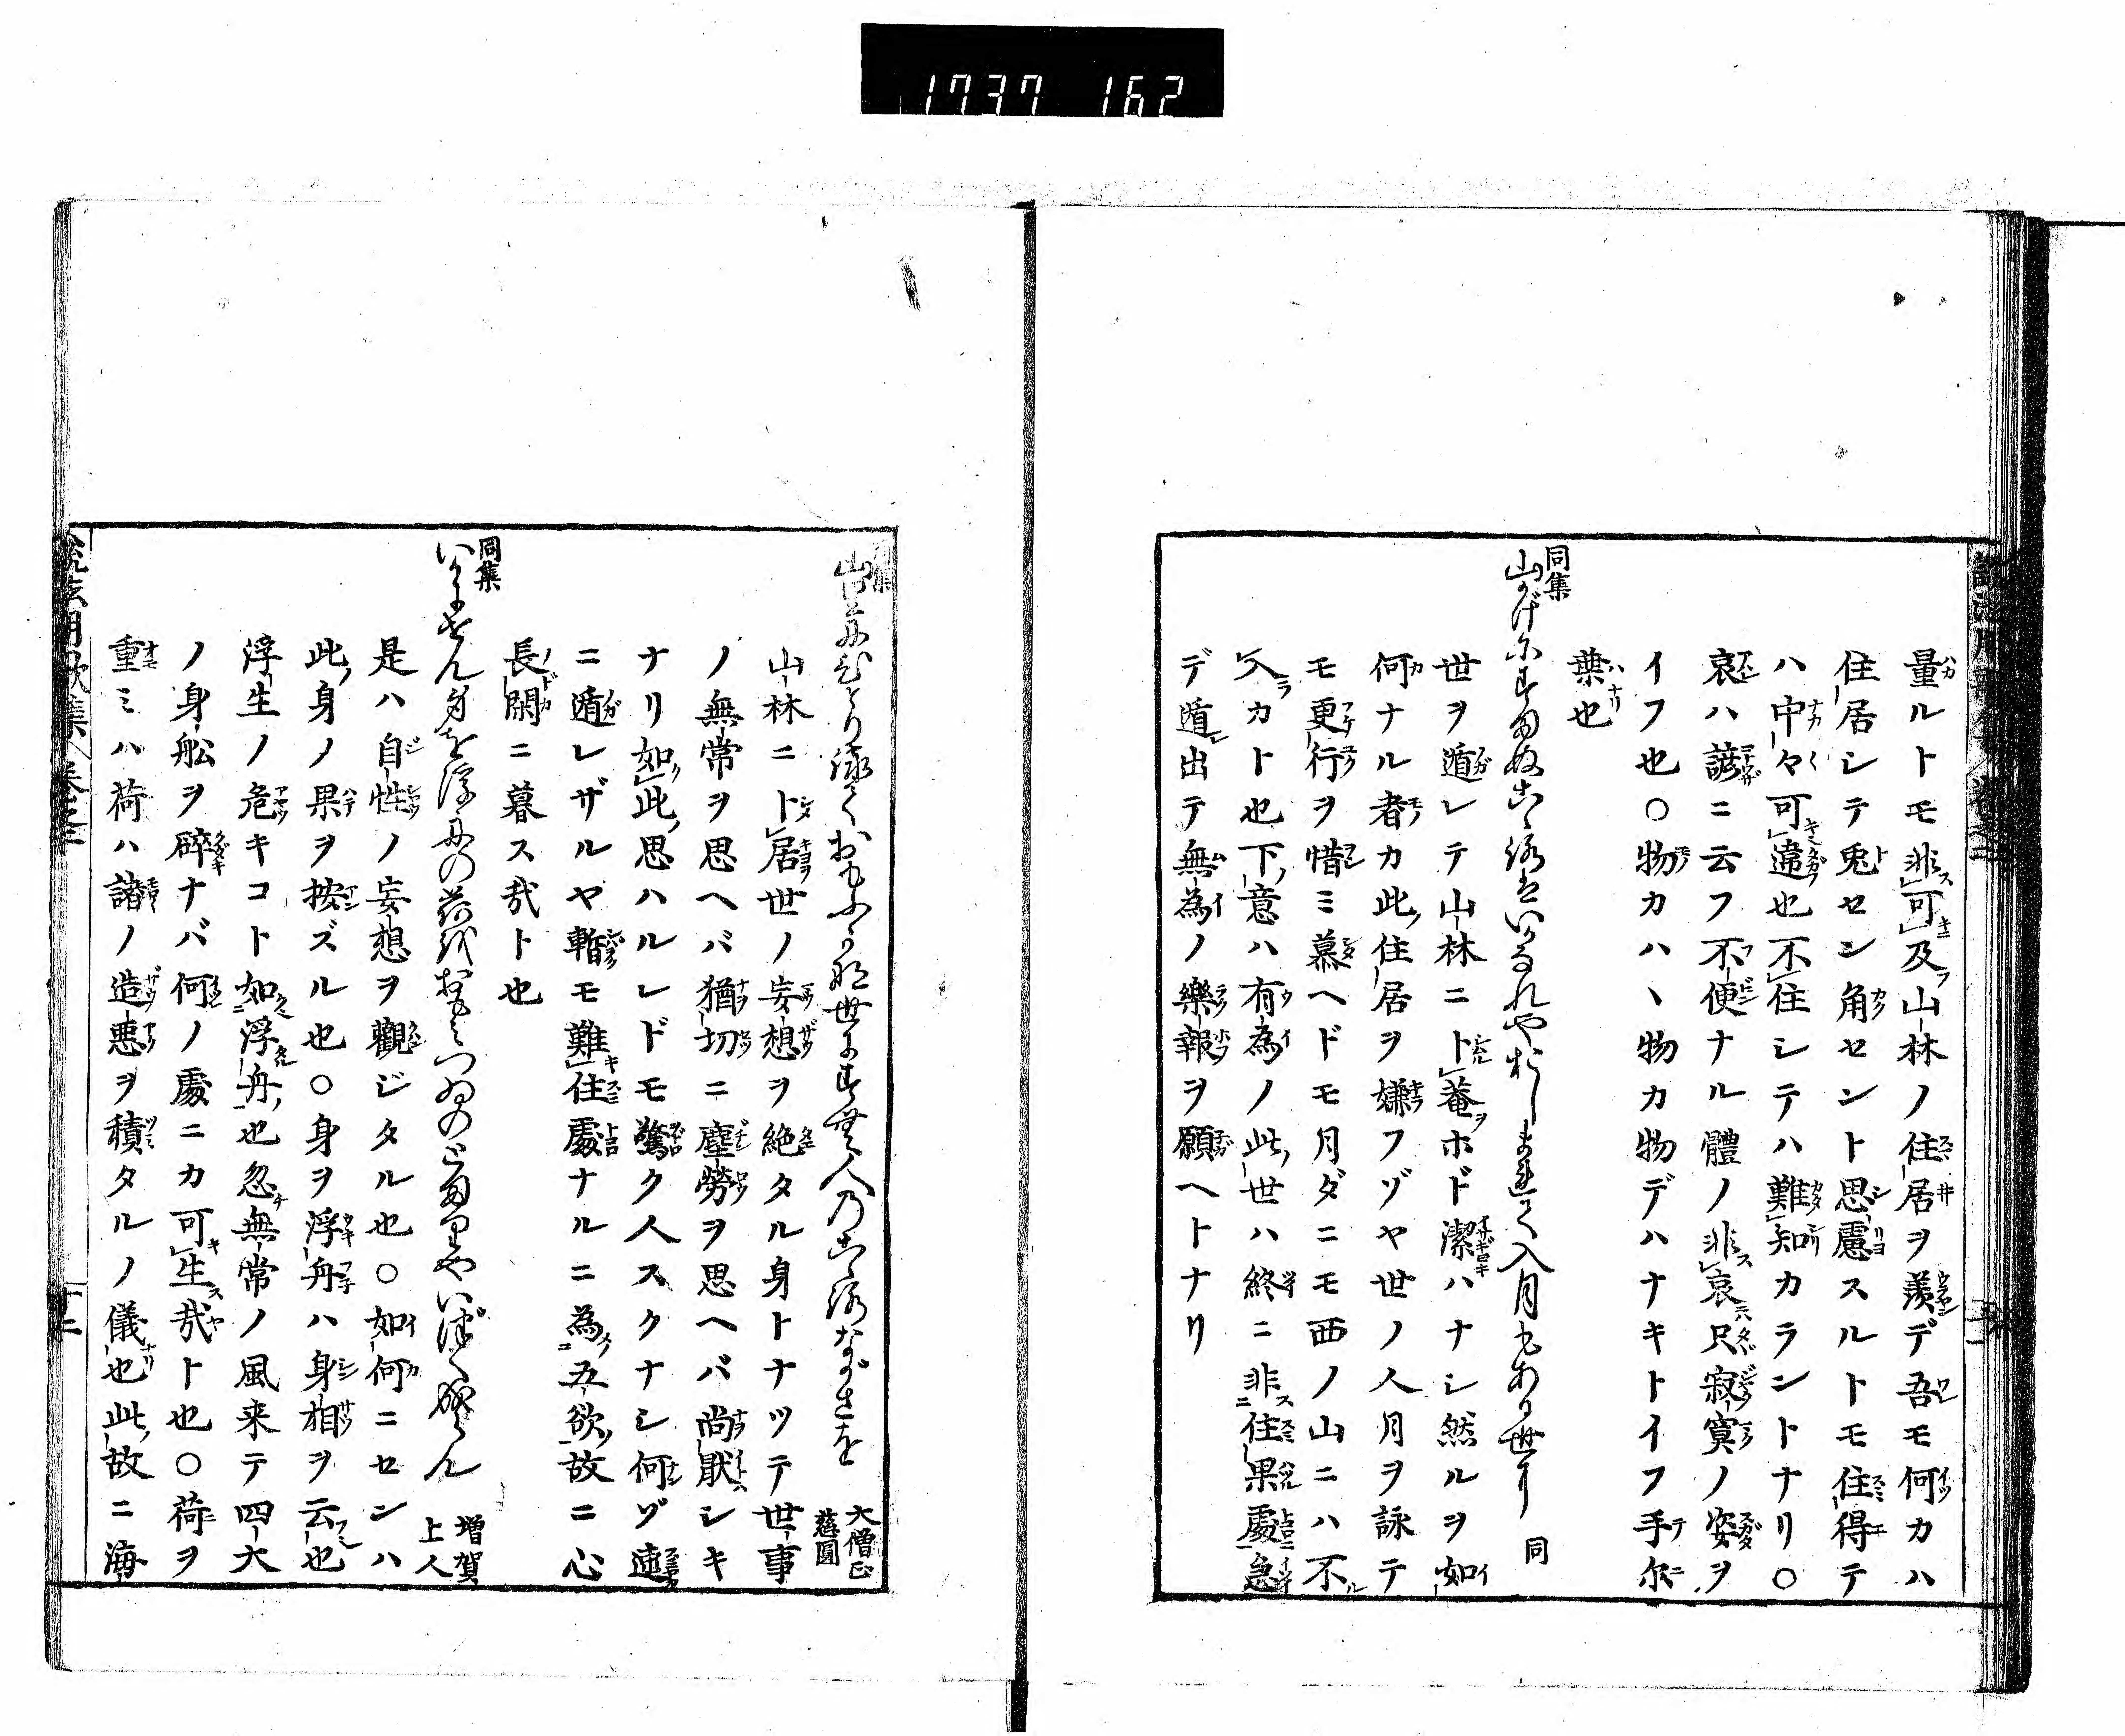 1737 162
量ルトモ非可及山林ノ住居ヲ羨デ吾モ何カハ
住居シテ兎セン角セント思慮スルトモ住得テ
ハ中々可違也不住シテハ難知カランドナリ○
哀ハ諺ニ云フ不便ナル體ノ非哀只寂寞ノ姿ヲ
イフ也○物カハヽ物カ物デハナキトイフ手尓
葉也
同集
山かげにすまぬこゝろはいかなれやおしまれて入月もある世に 同
世ヲ遁レテ山林ニト菴ホド潔ハナシ然ルヲ如
何ナル者カ此住居ヲ嫌フゾヤ世ノ人月ヲ詠テ
モ更行ヲ惜ミ慕ヘドモ月ダニモ西ノ山ニハ不
入カト也下意ハ有為ノ此世ハ終ニ非住果處急
デ遁出テ無為ノ樂報ヲ願ヘトナリ
山里にひとりながめておもふかな世にすむ人のこゝろながさを 大僧正慈圓
山林ニト居世ノ妄想ヲ絶タル身トナツテ世事
ノ無常ヲ思ヘバ猶切ニ塵勞ヲ思ヘバ尚厭シキ
ナリ如此思ハルレドモ驚ク人スクナシ何ゾ速
ニ遁レザルヤ暫モ難住處ナルニ為五欲故ニ心
長閑ニ暮ス哉ト也
同集
いかにせん身をうき舟の荷をおもみつゐのとまりやいづくなるらん 増賀上人
是ハ自性ノ妄想ヲ觀ジタル也○如何ニセンハ
此身ノ果ヲ按ズル也○身ヲ浮舟ハ身相ヲ云也
浮生ノ危キコト如浮舟也忽無常ノ風来テ四大
ノ身舩ヲ碎ナバ何ノ處ニカ可生哉ト也○荷ヲ
重ミハ荷ハ諸ノ造悪ヲ積タルノ儀也此故ニ海